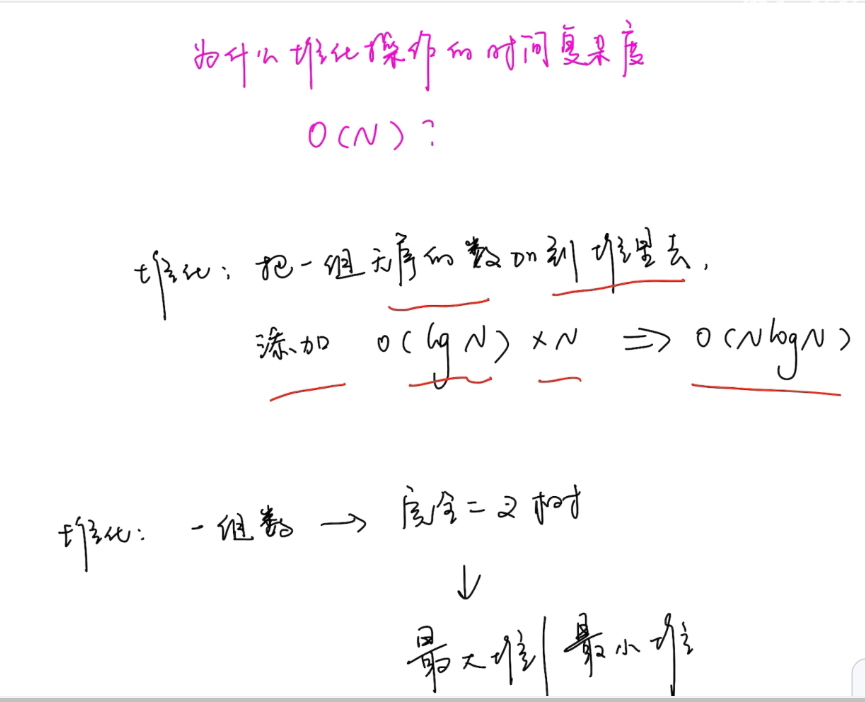 为什么堆化操作的时间复杂度
O(N)?
堆化: 把一组无序的数加到堆里去,
添加 O(logN) ×N ⇒ O(NlogN)
堆化: 一组数 → 完全二叉树
↓
最大堆|最小堆